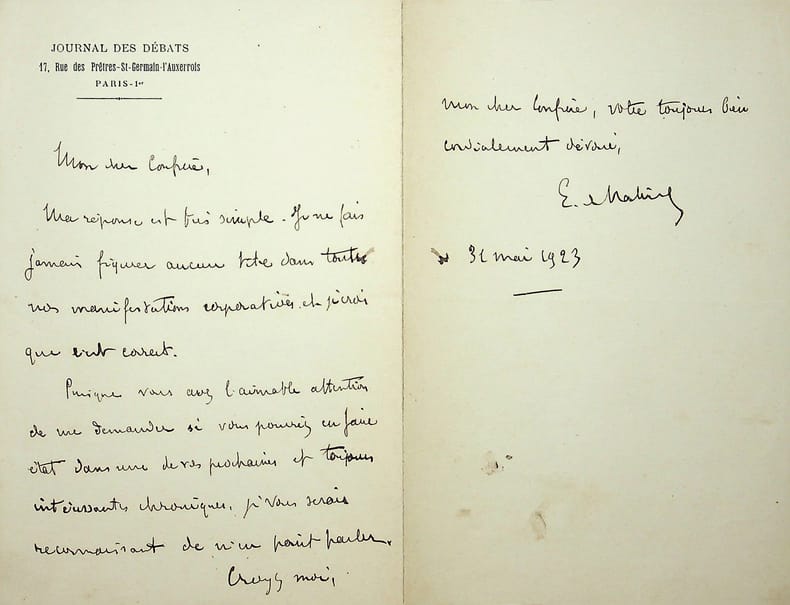 JOURNAL DES DÉBATS
17, Rue des Prêtres-St-Germain-l'Auxerrois
PARIS-1er
Mon cher Confrère,
Ma réponse est très simple. Je ne fais
jamais figurer aucun titre dans toutes
nos manifestations corporatives et je crois
que c'est correct.
Puisque vous avez l'aimable attention
de me demander si vous pourriez en faire
état dans une de vos prochaines et toujours
intéressantes chroniques, je vous serais
reconnaissant de n'en point parler.
Croyez moi,
mon cher Confrère, votre toujours bien
cordialement dévoué,
E. de
31 mai 1923